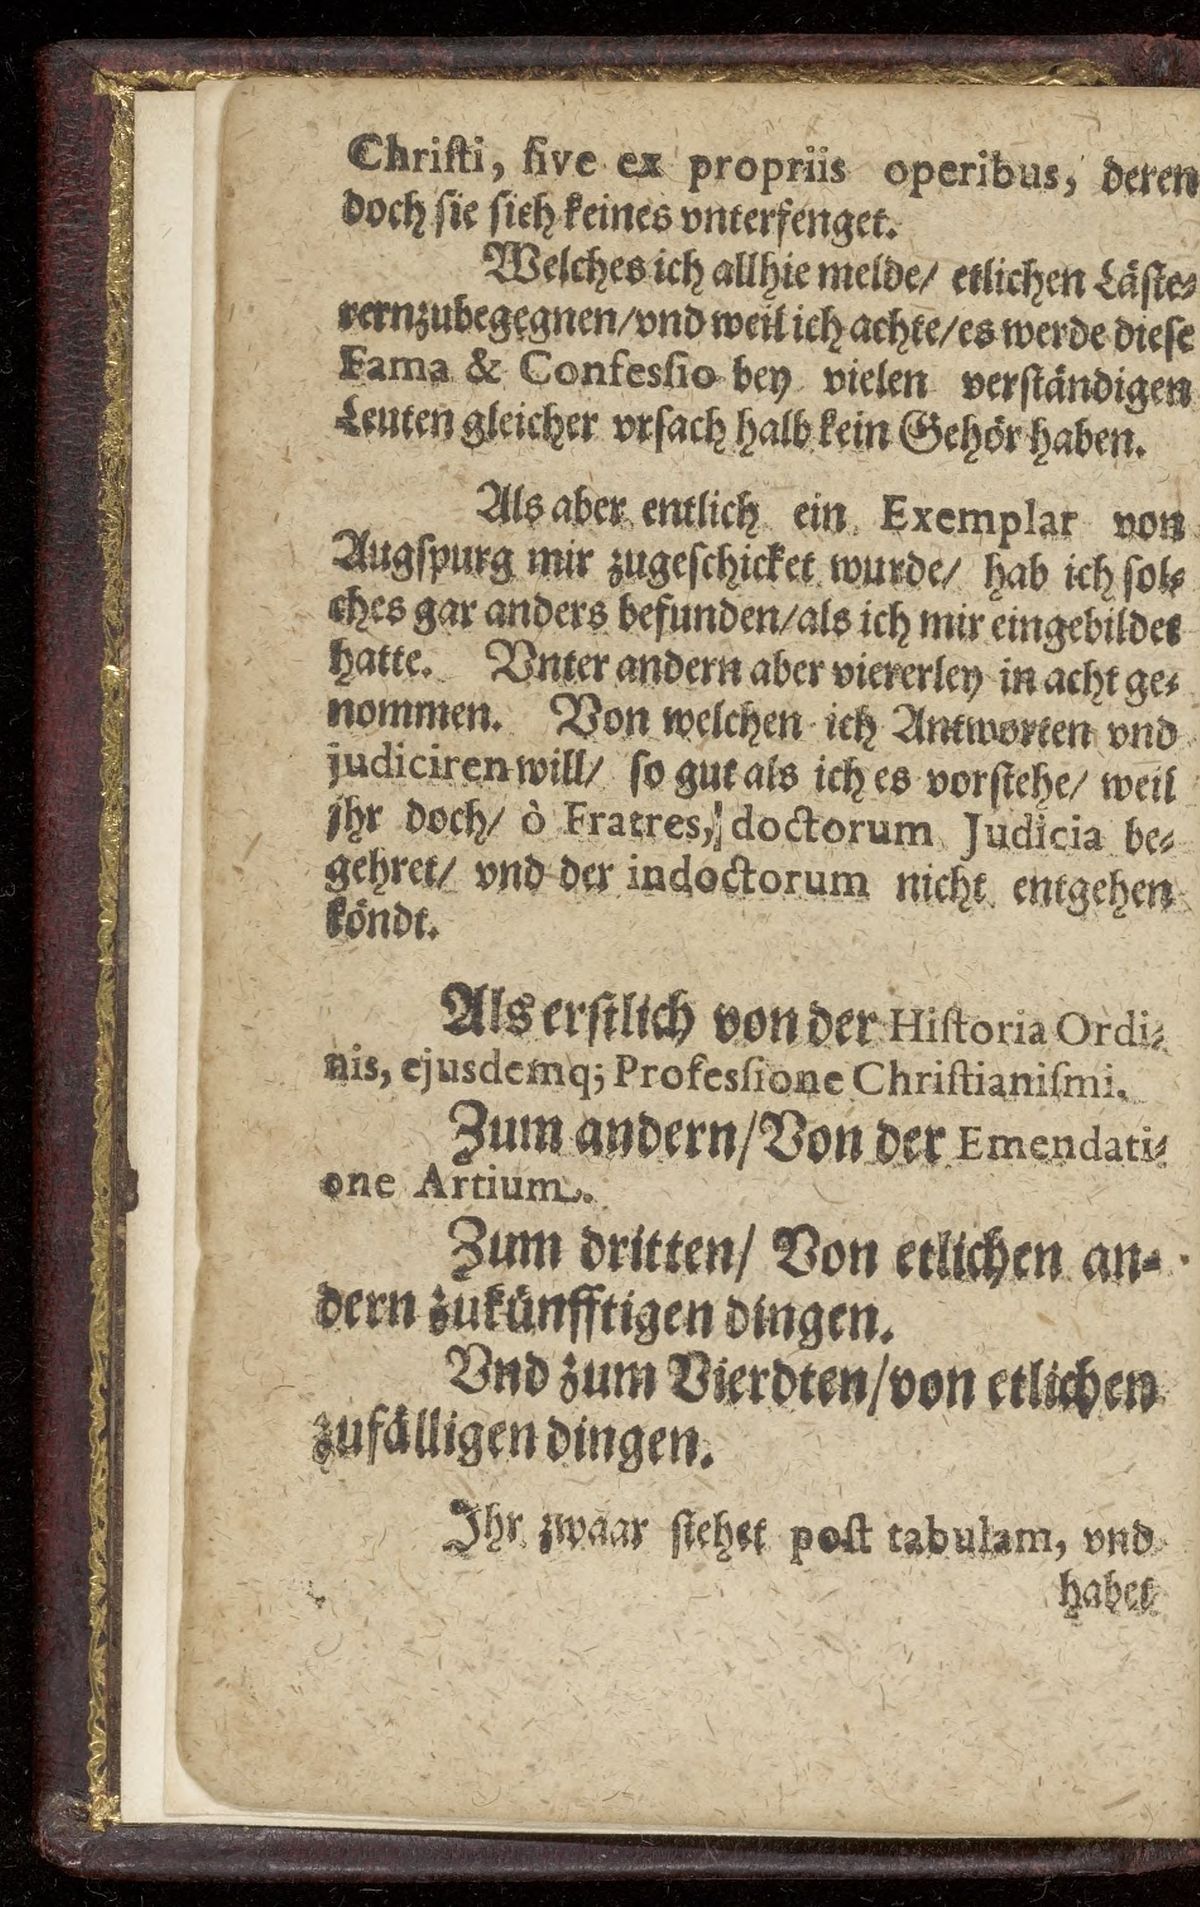 Chriſti, ſive ex propriis operibus, deren
doch ſie ſich keines vnterfenget.
Welches ich allhie melde/ etlichen Läſte⸗
rernzubegegnen/vnd weil ich achte/es werde dieſe
Fama & Confesſio bey vielen verſtändigen
Leuten gleicher vrſach halb kein Gehör haben.
Als aber entlich ein Exemplar von
Augſpurg mir zugeſchicket wurde/ hab ich ſol⸗
ches gar anders befunden/als ich mir eingebildet
hatte. Vnter andern aber viererley in acht ge⸗
nommen. Von welchen ich Antworten vnd
judiciren will/ ſo gut als ich es vorſtehe/ weil
jhr doch/ ò Fratres, doctorum Judicia be⸗
gehret/ vnd der indoctorum nicht entgehen
köndt.
Als erſtlich von der Hiſtoria Ordi⸗
nis, ejusdemq; Profesſione Chriſtianiſmi.
Zum andern/Von der Emendati⸗
one Artium.
Zum dritten/ Von etlichen an⸗
dern zukünfftigen dingen.
Vnd zum Vierdten/von etlichen
zufälligen dingen.
Ihr zwaar ſtehet poſt tabulam, vnd
habet